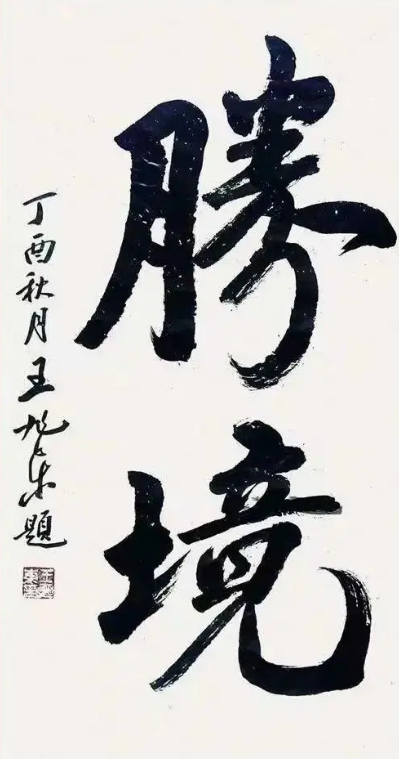 勝境
丁酉秋月王旭東題